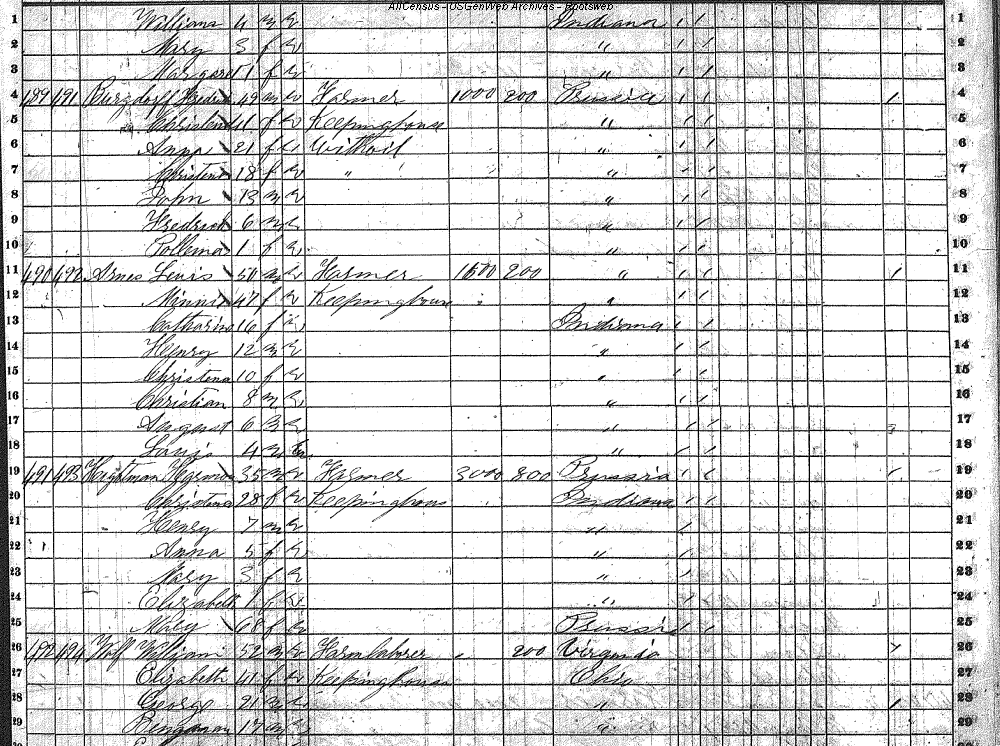 AllCensus - USGenWeb Archives - Rootsweb
1 William 4 m W Indiana / / 1
2 Mary 3 f W " / / 2
3 Margaret 1 f W " / / 3
4 489 491 Burgdorff Fredrick 49 m W Farmer 1000 200 Prussia / / 1 4
5 f W Keepinghouse " / / 5
6 Anna 21 f W " / / 6
7 Christena 18 f W " " / / 7
8 John 13 m W " / / 8
9 Fredrick 6 m W " / / 9
10 1 f W " / / 10
11 490 492 Lewis 50 m W Farmer 1500 200 " / / 1 11
12 Minnie 47 f W Keepinghouse " / / 12
13 Catharina 16 f W Indiana / / 13
14 Henry 12 m W " / / 14
15 Christena 10 f W " / / 15
16 Christian 8 m W " / / 16
17 August 6 m W " / / 17
18 Louis 4 m W " / / 18
19 491 493 Hermon 35 m W Farmer 3000 800 Prussia / / 1 19
20 Christena 28 f W Keepinghouse Indiana / / 20
21 Henry 7 m W " / 21
22 Anna 5 f W " / 22
23 Mary 3 f W " / 23
24 Elizabeth 1 f W " / 24
25 Mary 68 f W Prussia / / 25
26 492 494 Wolf William 52 m W Farmlaborer 200 Virginia 26
27 Elizabeth 41 f W Keepinghouse Ohio 27
28 George 21 m W " 1 28
29 Bengaman 17 m W " 29